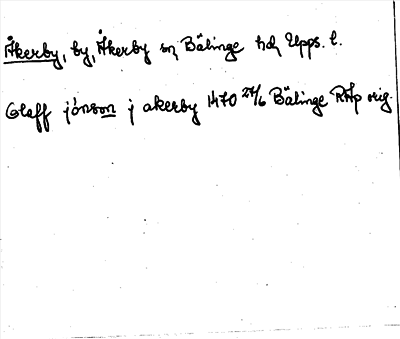 Åkerby, by, Åkerby sn Bälinge hd Upps. l.
Olaff jónson j akerby 1470 27/6 Bälinge RAp orig.